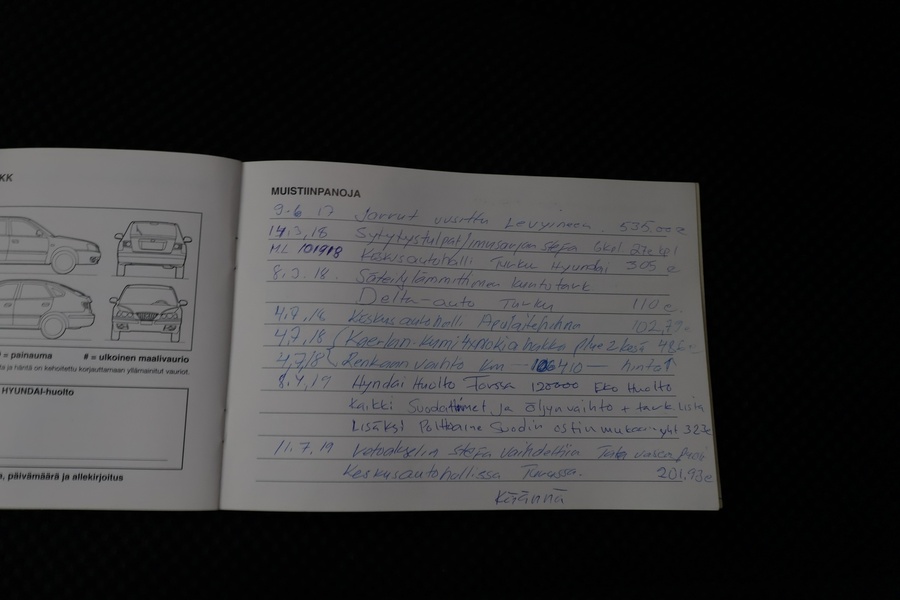 KK
= painauma # = ulkoinen maalivaurio
ja häntä on kehoitettu korjauttamaan yllämainitut vauriot.
HYUNDAI-huolto
a, päivämäärä ja allekirjoitus
MUISTIINPANOJA
9-6 17 Jarrut uusittu Levyineen. 535.00 e
14.3.18 Sytytystulpat/imusarjan stefa 6kpl. 27e kpl
ML 101918 Keskusautohalli Turku Hyundai 305 e
8.3.18. Säteilylämmittimen kuntotark.
Delta-auto Turku 110 e.
4.7.18 Keskusautohalli Apulaitehihna 102,79
4.7.18 Kaerlan-kumi hakka plus 2 486
4.7.18 Renkaan vaihto Km 106410 — hinta ↑
8.4.19 Hyndai Huolto Forssa 120000 Eko Huolto
Kaikki Suodattimet ja öljynvaihto + tark lista
Lisäksi Polttoaine Suodin ostin mukaan yht 323e
11.7.19 Vetoakselin stefa vaihdettiin vasen
Keskusautohallissa Turussa. 201.93e
Käännä